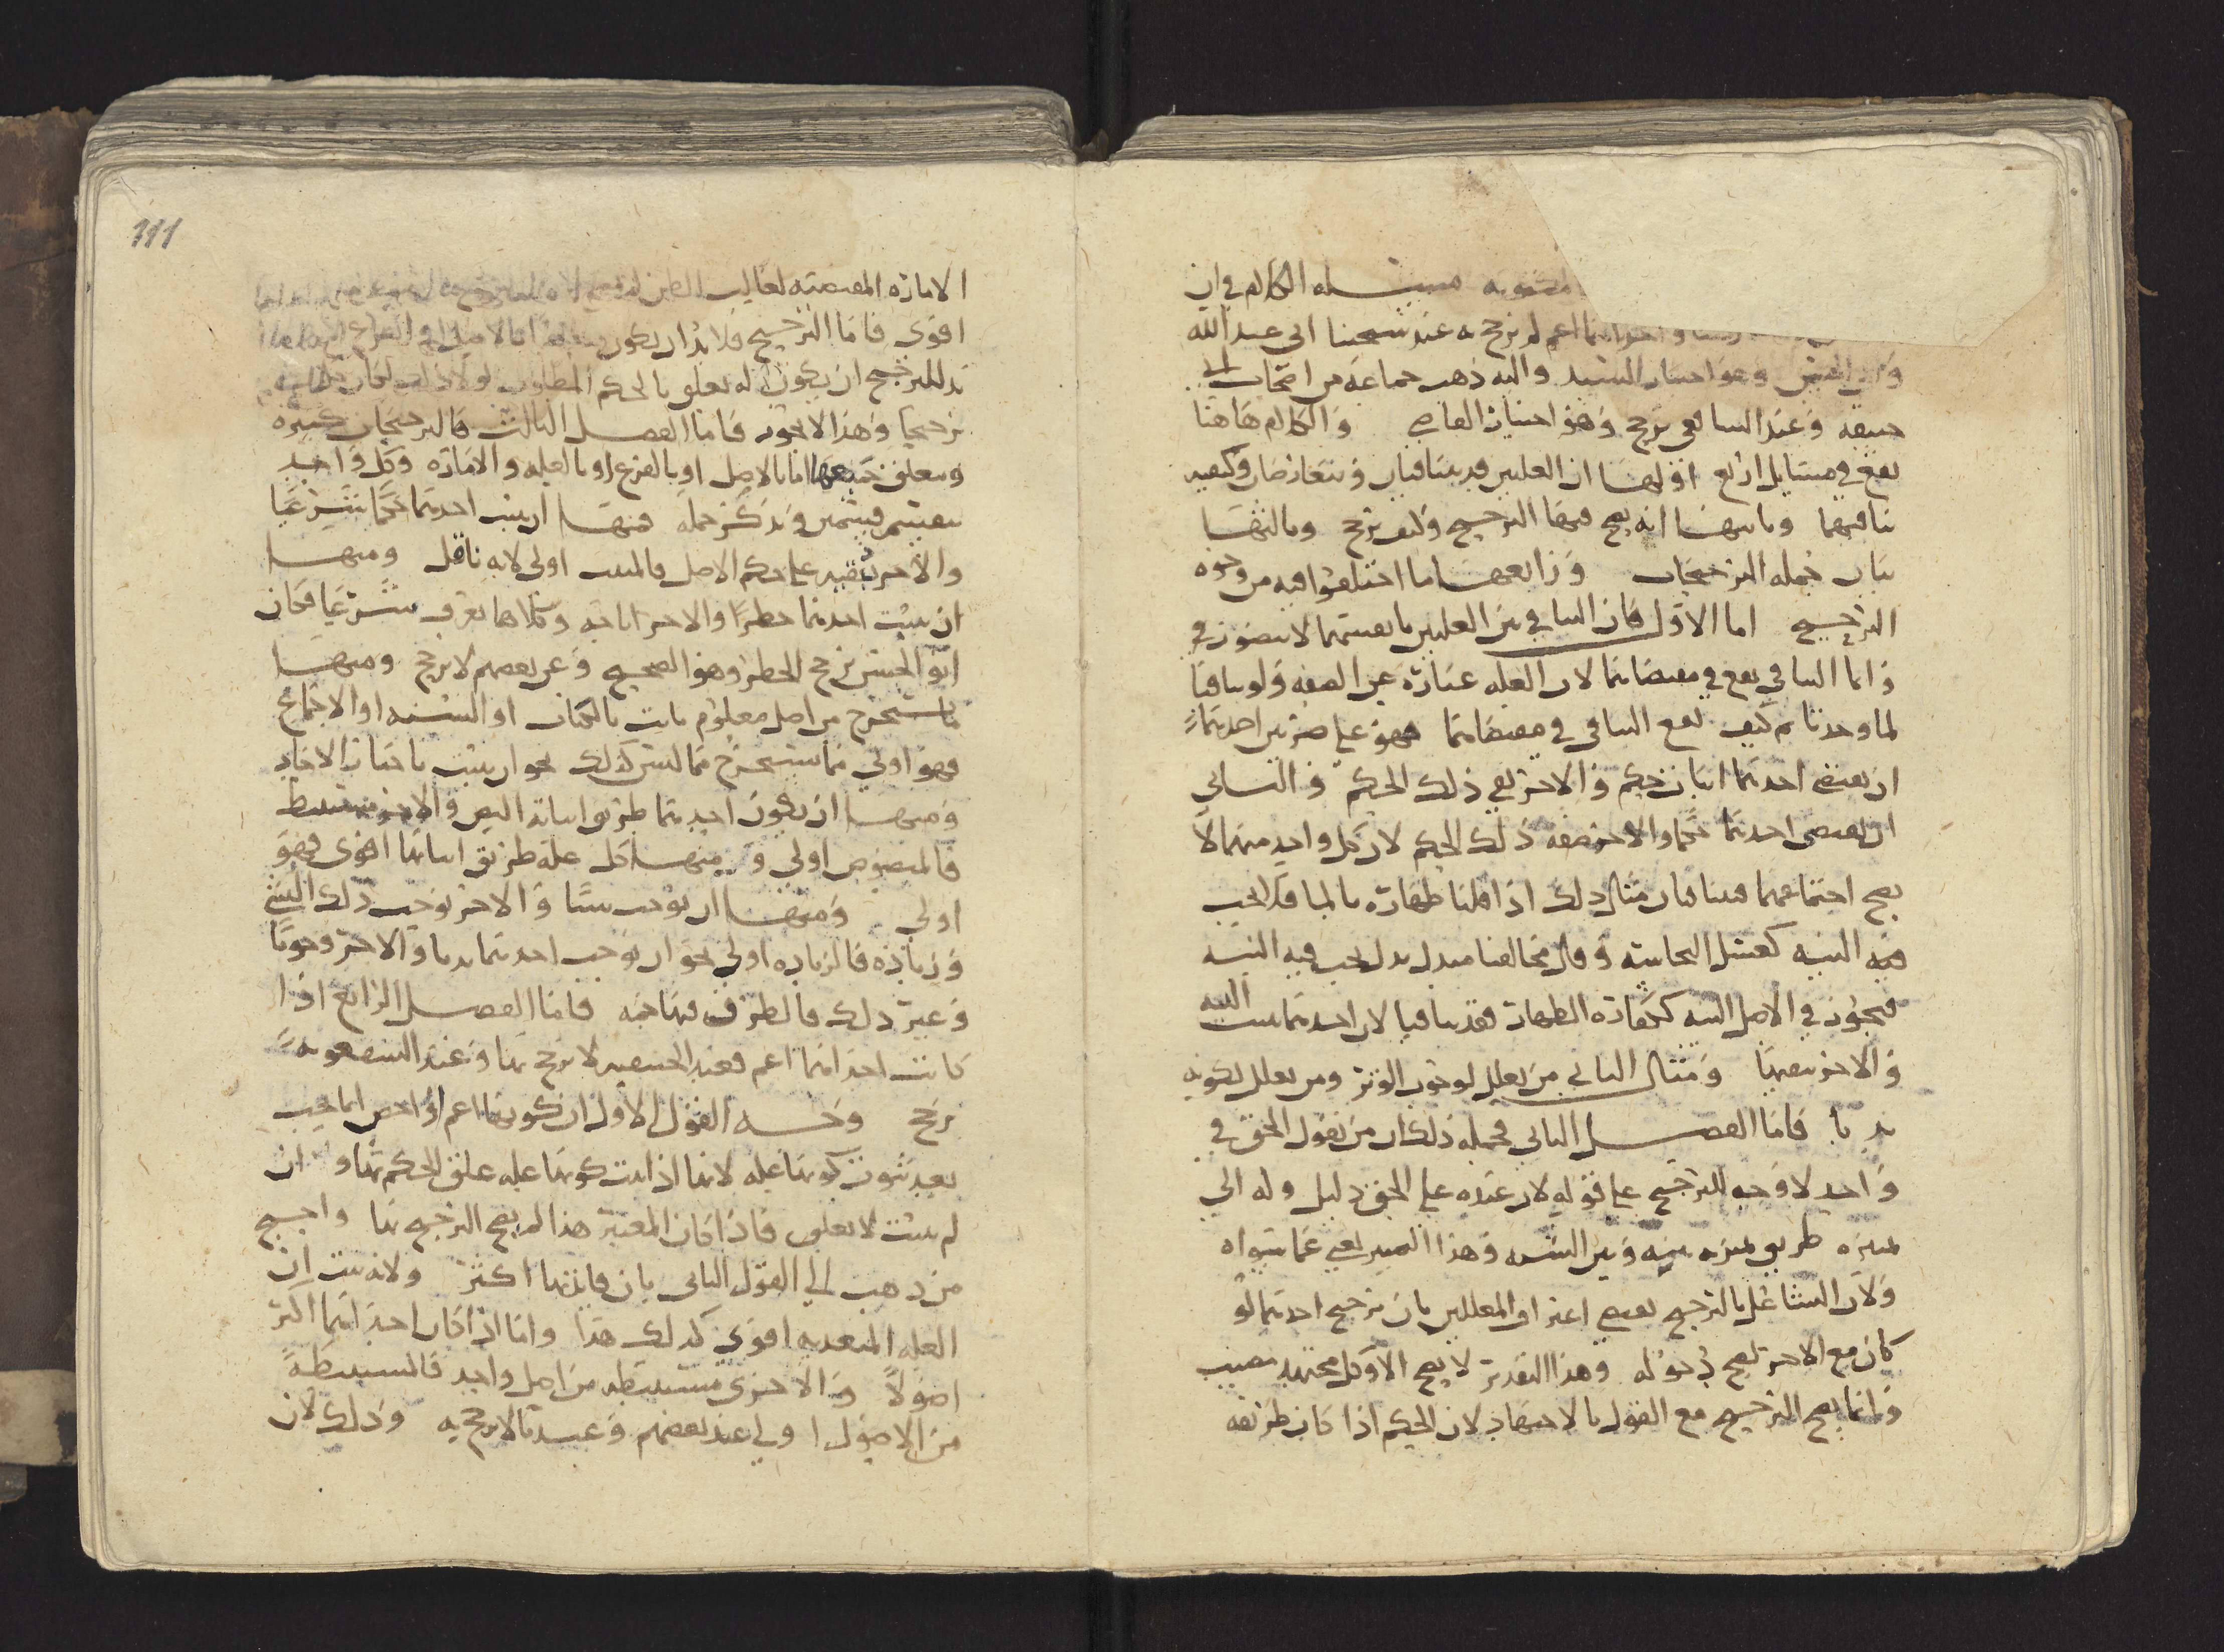 مسئلة الكلام في ان
احداهما اعم لم يرجح به عند شيخنا ابى عبد الله
وابى الحسين وهو اختيار السيد واليه ذهب جماعة من اصحاب ابى
حنيفه وعند الشافعي يرجح وهو اختيار القاضي والكلام هاهنا
يقع في مسايل اربع اولها ان العلتين قد يتنافيان ويتعارضان وكيفيه
تنافيهما وثانيها انه يصح فيها الترجيح وكيف يرجح وثالثها
بيان جمله الترجيحات ورابعها ما اختلفوا فيه من وجوه
الترجيح اما الاول فان التنافي بين العلتين بانفسهما لا يتصور في
وانما التنافي يقع في مقتضاهما لان العله عباره عن الصفه ولو تنافيا
لما وجدتا ثم كيف يقع التنافى في مقتضاهما فهو على ضربين احدهما
ان يقتضي احدهما اثبات حكم والاخر نفي ذلك الحكم والثاني
ان يقتضى احدهما حكما والاخر ضد ذلك الحكم لان كل واحد منهما لا
يصح اجتماعهما فيتنافيان مثال ذلك اذا قلنا طهاره بالما فلا يجب
فيه النيه كغسل النجاسه وقال مخالفنا مبدل ببدل يجب فيه النيه
فيجوز في الاصل النيه ككفارة الظهار فقد تنافيا لان احدهما يثبت النيه
والاخر ينفيها ومثال الثاني من يعلل لوجوب الوتر ومن يعلل لكونه
ندبا فاما الفصل الثاني فجمله ذلك ان من يقول الحق في
واحد لا وجه للترجيح على قوله لان عنده على الحق دليل وله الي
تمييزه طريق تميزه بينه وبين الشبه وهذا التمييز يغني عما سواه
ولان التشاغل بالترجيح يقتضي اعتراف المعللين بان ترجيح احدهما لو
كان مع الاخر لصح قوله وهذا التقدير لا يصح الا وكل مجتهد مصيب
وانما يصح الترجيح مع القول بالاجتهاد لان الحكم اذا كان طريقه
111
الاماره المقتضيه لغالب الظن
اقوى فاما الترجيح فلا بد ان يكون
بد للمرجح ان يكون له تعلق بالحكم المطلوب لولا ذلك لكان
ترجيحا وهذا لا يجوز فاما الفصل الثالث فالترجيحات كثيره
ويتعلق جميعها اما بالاصل او بالفرع او بالعله والاماره وكل واحد
ينقسم قسمين ونذكر جمله منها ان يثبت احدهما حكما شرعيا
والاخر يفيد على حكم الاصل فالمثبت اولى لانه ناقل ومنها
ان يثبت احدهما حظرا والاخر اباحه وكلاهما يعرف شرعيا فكان
ابو الحسن يرجح الحظر وهو الصحيح وعن بعضهم لا يرجح ومنها
ما يستخرج من اصل معلوم ثابت بالكتاب او السنه او الاجماع
فهو اولي مما يستخرج مما ليس كذلك نحو ان يثبت باخبار الاحاد
ومنها ان يكون احدهما طريق اثباته النص والاخر مستنبط
فالمنصوص اولي ومنها كل عله طريق اثباتها اقوى فهو
اولى ومنها ان يوجب شيئا والاخر يوجب ذلك الشي
وزياده فالزياده اولى نحو ان يوجب احدهما ندبا والاخر وجوبا
وغير ذلك فالطرق فيها جمه فاما الفصل الرابع اذا
كانت احداهما اعم فعند الحنفيه لا يرجح بها وعند الشفعويه
يرجح وجه القول الاول ان كونها اعم او اخص انما يجب
بعد ثبوت كونها عله لانها اذا ثبت كونها عله علق الحكم بها وان
لم يثبت لا يعلق فاذا كان المعتبر هذا لم يصح الترجيح بها واحتج
من ذهب الى القول الثانى بان فايدتها اكثر ولانه يثبت ان
العله المتعديه اقوى كذلك هذا واما اذا كان احداهما اكثر
اصولا والاخرى مستنبطه من اصل واحد فالمستنبطة
من الاصول اولي عند بعضهم وعندنا لا يرجح به وذلك لان